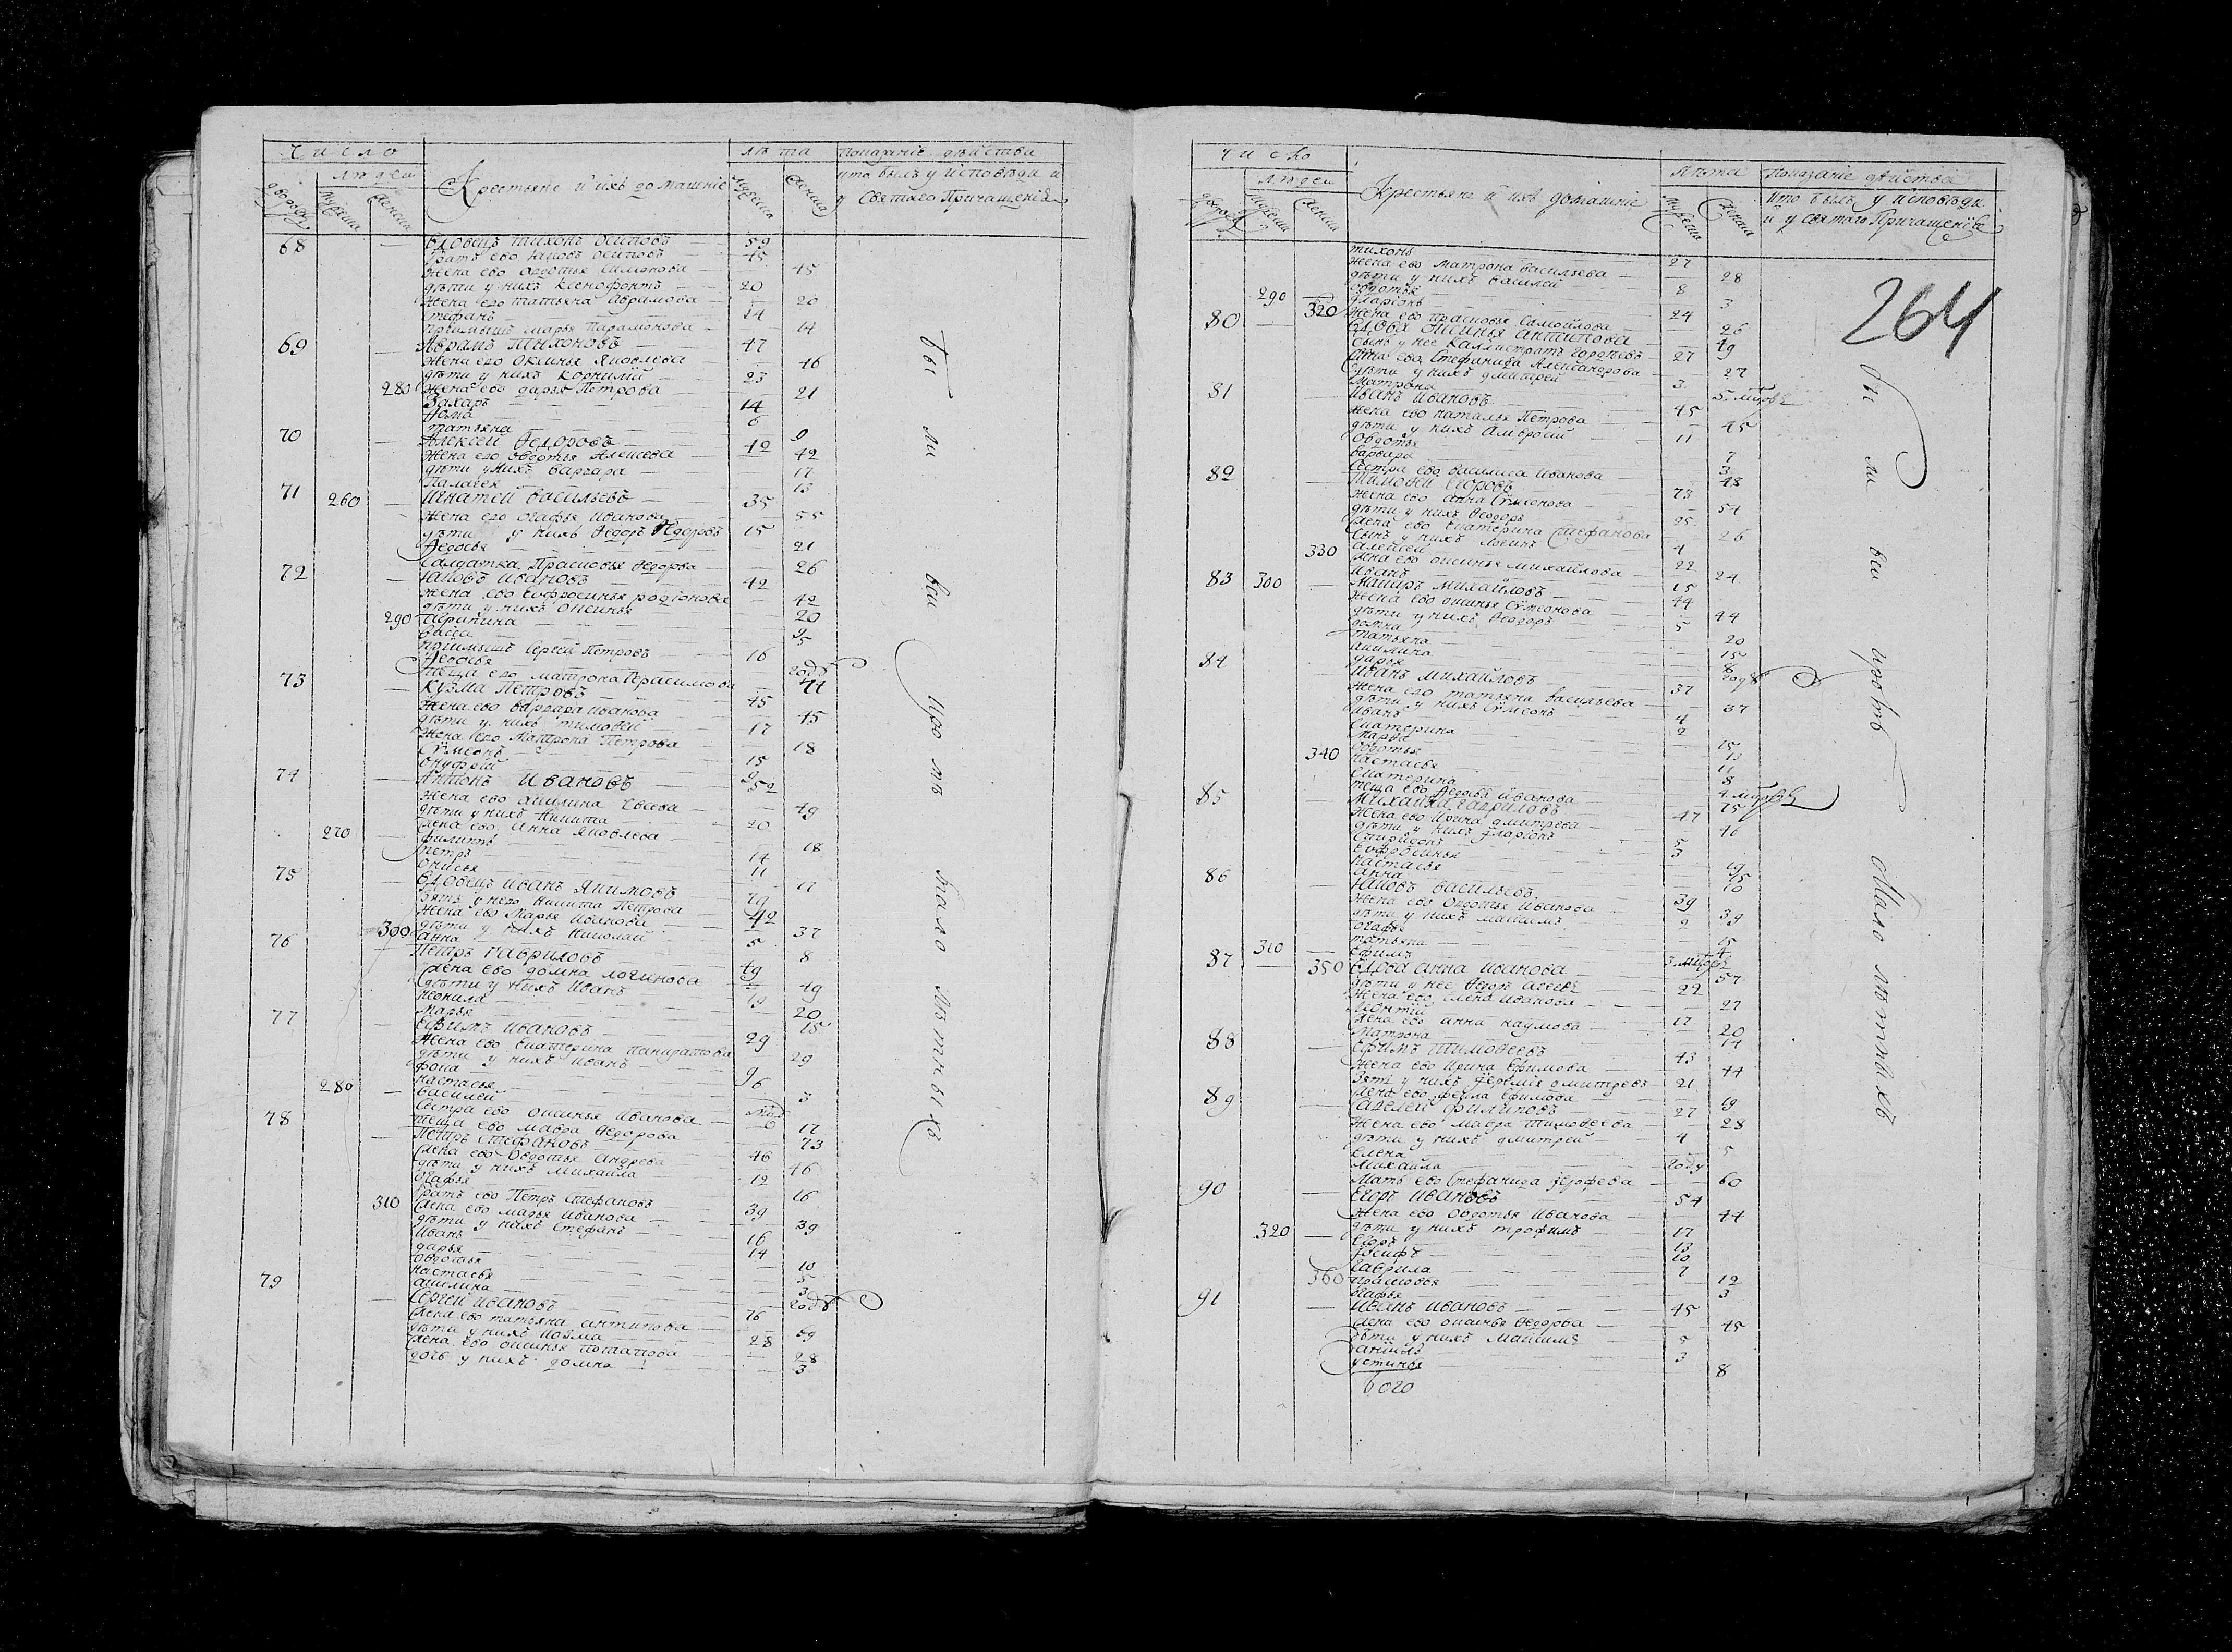 Число
лѣта
Показаніе дѣйства
людей
Крестьяне и ихъ домашніе
кто былъ у исповѣди и
у Святаго Причащенія
дворовъ
мужеска
женска
мужеска
женска
68 — Вдовецъ Тихонъ Осиповъ — 59
братъ ево Яковъ Осиповъ — 45
жена ево Авдотья Симонова — 45
дѣти у нихъ Ксенофонтъ — 20
жена его Татьяна Абрамова — 20
Стефанъ — 14
пріимышъ Марья Парамонова — 14
69 — Абрамъ Тихоновъ — 47
жена его Оксинья Яковлева — 46
дѣти у нихъ Корнилій — 23
280 жена ево Дарья Петрова — 21
Захаръ — 14
Фома — 6
Татьяна — 9
70 — Алексей Федоровъ — 42
жена его Овдотья Алексева — 42
дѣти у нихъ Варвара — 17
Палагея — 13
71 260 — Игнатей Васильевъ — 35
жена его Огафья Иванова — 55
дѣти у нихъ Федоръ Федоровъ — 15
Федосья — 21
Салдатка Прасковья Федорова — 26
72 — Яковъ Ивановъ — 42
жена ево Еофросинья Родіонова — 42
дѣти у нихъ Оксинья — 20
290 Акрипина — 9
Васса — 5
пріимышъ Сергей Петровъ — 16
Федосья — годъ
теща его Матрона Герасимова — 74
73 — Кузма Петровъ — 45
жена ево Варвара Иванова — 45
дѣти у нихъ Тимофей — 17
жена его Матрона Петрова — 18
Сѵмеонъ — 15
Онуфрій — 9
74 — Антонъ Ивановъ — 52
жена ево Акилина Евсева — 49
дѣти у нихъ Никита — 20
270 жена ево Анна Яковлева — 18
Филипъ — 14
Петръ — 11
Онисья — 17
75 — Вдовецъ Иванъ Якимовъ — 79
зять у него Никита Петрова — 42
жена ево Марья Иванова — 37
дѣти у нихъ Николай — 5
300 Анна — 8
76 — Петръ Гавриловъ — 49
жена ево Домна Логинова — 49
дѣти у нихъ Иванъ — 19
Неонила — 20
Марья — 15
77 — Ефимъ Ивановъ — 29
жена ево Екатерина Панкратова — 29
дѣти у нихъ Иванъ — 9
Фока — 6
Настасья — 3
280 — Василей
сестра ево Оксинья Иванова — 17
теща ево Мавра Федорова — 73
78 — Петръ Стефановъ — 46
жена ево Овдотья Андрева — 46
дѣти у нихъ Михайла — 12
Огафья — 16
братъ ево Петръ Стефановъ — 39
310 жена ево Марья Иванова — 39
дѣти у нихъ Стефанъ — 16
Иванъ — 14
Дарья — 10
Овдотья — 5
Настасья — 3
Акилина — годъ
79 — Сергей Ивановъ — 76
жена ево Татьяна Антипова — 69
дѣти у нихъ Козма — 28
жена ево Оксинья Потапова — 28
дочь у нихъ Домна — 3
были вси кромѣ мало лѣтныхъ
Число
лѣта
Показаніе дѣйства
людей
Крестьяне и ихъ домашніе
кто былъ у исповѣди
и у Святаго Причащенія
дворовъ
мужеска
женска
мужеска
женска
264
Тихонъ — 27
жена ево Матрона Васильева — 28
дѣти у нихъ Василей — 8
Овдотья — 3
290 — Иларіонъ — 24
320 жена ево Прасковья Самойлова — 26
80 — Вдова Оксинья Антипова — 49
сынъ у нее Каллистратъ Гордѣевъ — 27
жена ево Стефанида Александрова — 27
дѣти у нихъ Дмитрей — 3
Матрона
81 — Иванъ Ивановъ — 45
жена ево Наталья Петрова — 45
дѣти у нихъ Амвросій — 11
Овдотья — 7
Варвара — 3
сестра ево Василиса Иванова — 43
82 — Тимофей Егоровъ — 73
жена ево Анна Сѵмеонова — 54
дѣти у нихъ Феодоръ — 25
жена ево Екатерина Стефанова — 26
сынъ у нихъ Логинъ — 4
Алексей — 22
330 жена ево Оксинья Михайлова — 24
Иванъ — 15
83 300 — Макаръ Михайловъ — 44
жена ево Оксинья Сѵмеонова — 44
дѣти у нихъ Феодоръ — 5
Домна — 20
Татьяна — 15
Акилина — 8
Дарья — годъ
84 — Иванъ Михайловъ — 37
жена его Татьяна Васильева — 37
дѣти у нихъ Сѵмеонъ — 4
Иванъ — 2
Екатерина — 15
Марфа — 13
Овдотья — 11
340 Настасья — 8
Екатерина
теща ево Федосья Иванова — 75
85 — Михайла Гавриловъ — 47
жена ево Ирина Дмитрева — 46
дѣти у нихъ Иларіонъ — 5
Спиридонъ — 3
Еофросинья — 19
Настасья — 15
Анна — 10
86 — Яковъ Васильевъ — 39
жена ево Овдотья Иванова — 39
дѣти у нихъ Максимъ — 9
Огафья — 15
Татьяна — 4
310 — Ефимъ
87 — 350 Вдова Анна Иванова — 57
дѣти у нее Федоръ — 22
жена ево Елена Иванова — 27
Леонтій — 17
жена ево Анна Наумова — 20
Матрона — 14
88 — Ефимъ Тимофеевъ — 43
жена ево Ирина Ефимова — 44
зять у нихъ Іеремія Дмитревъ — 21
жена ево Фекла Ефимова — 19
89 — Савелей Филиповъ — 27
жена ево Мавра Тимофеева — 28
дѣти у нихъ Дмитрей — 4
Елена — 5
Михайла — году
мать ево Стефанида Ерофева — 60
90 — Егоръ Ивановъ — 54
жена ево Овдотья Иванова — 44
320 — дѣти у нихъ Трофимъ — 17
Егоръ — 13
Іосифъ — 10
Гаврила — 7
360 Прасковья — 12
Огафья — 3
91 — Иванъ Ивановъ — 45
жена ево Оксинья Федорова — 45
дѣти у нихъ Максимъ — 5
Даніилъ — 3
Устинья — 8
были вси кромѣ мало лѣтныхъ